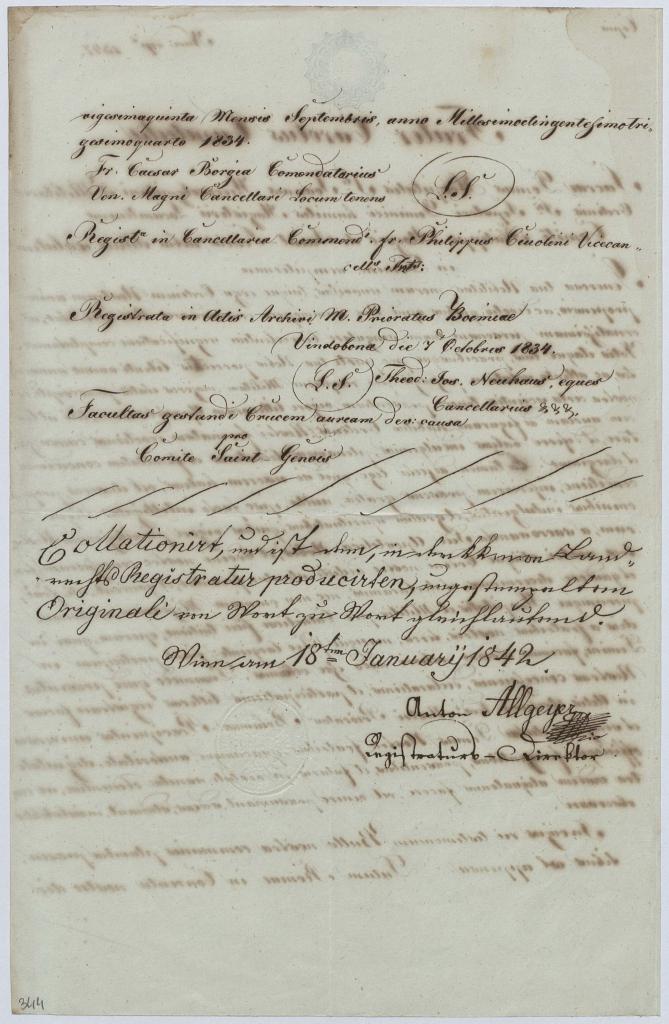 vigesimaquinta Mensis Septembris, anno Millesimoctingentesimotri-
gesimoquarto 1834.
Fr. Caesar Borgia Comendatarius
Ven. Magni Cancellari Locumtenens
L.S.
Regist.ta in Cancellaria Commend. fr. Philippus Ciuolini Vicecan=
cell.s
Registrata in Actis Archivi M. Prioratus Boemiae
Vindobona die 7 Octobris 1834.
L.S.
Theod: Jos. Neuhaus, eques
Cancellarius &&&.
Facultas gestandi Crucem auream dev: causa
pro
Comite Saint Genois
Collationirt, und ist dem, in der kk. Land=
rechts Registratur producirten, ungestempelten
Originali von Wort zu Wort gleichlautend.
Wien am 18ten Januarÿ 1842.
Anton Allgeyer
Registraturs-Direktor
344